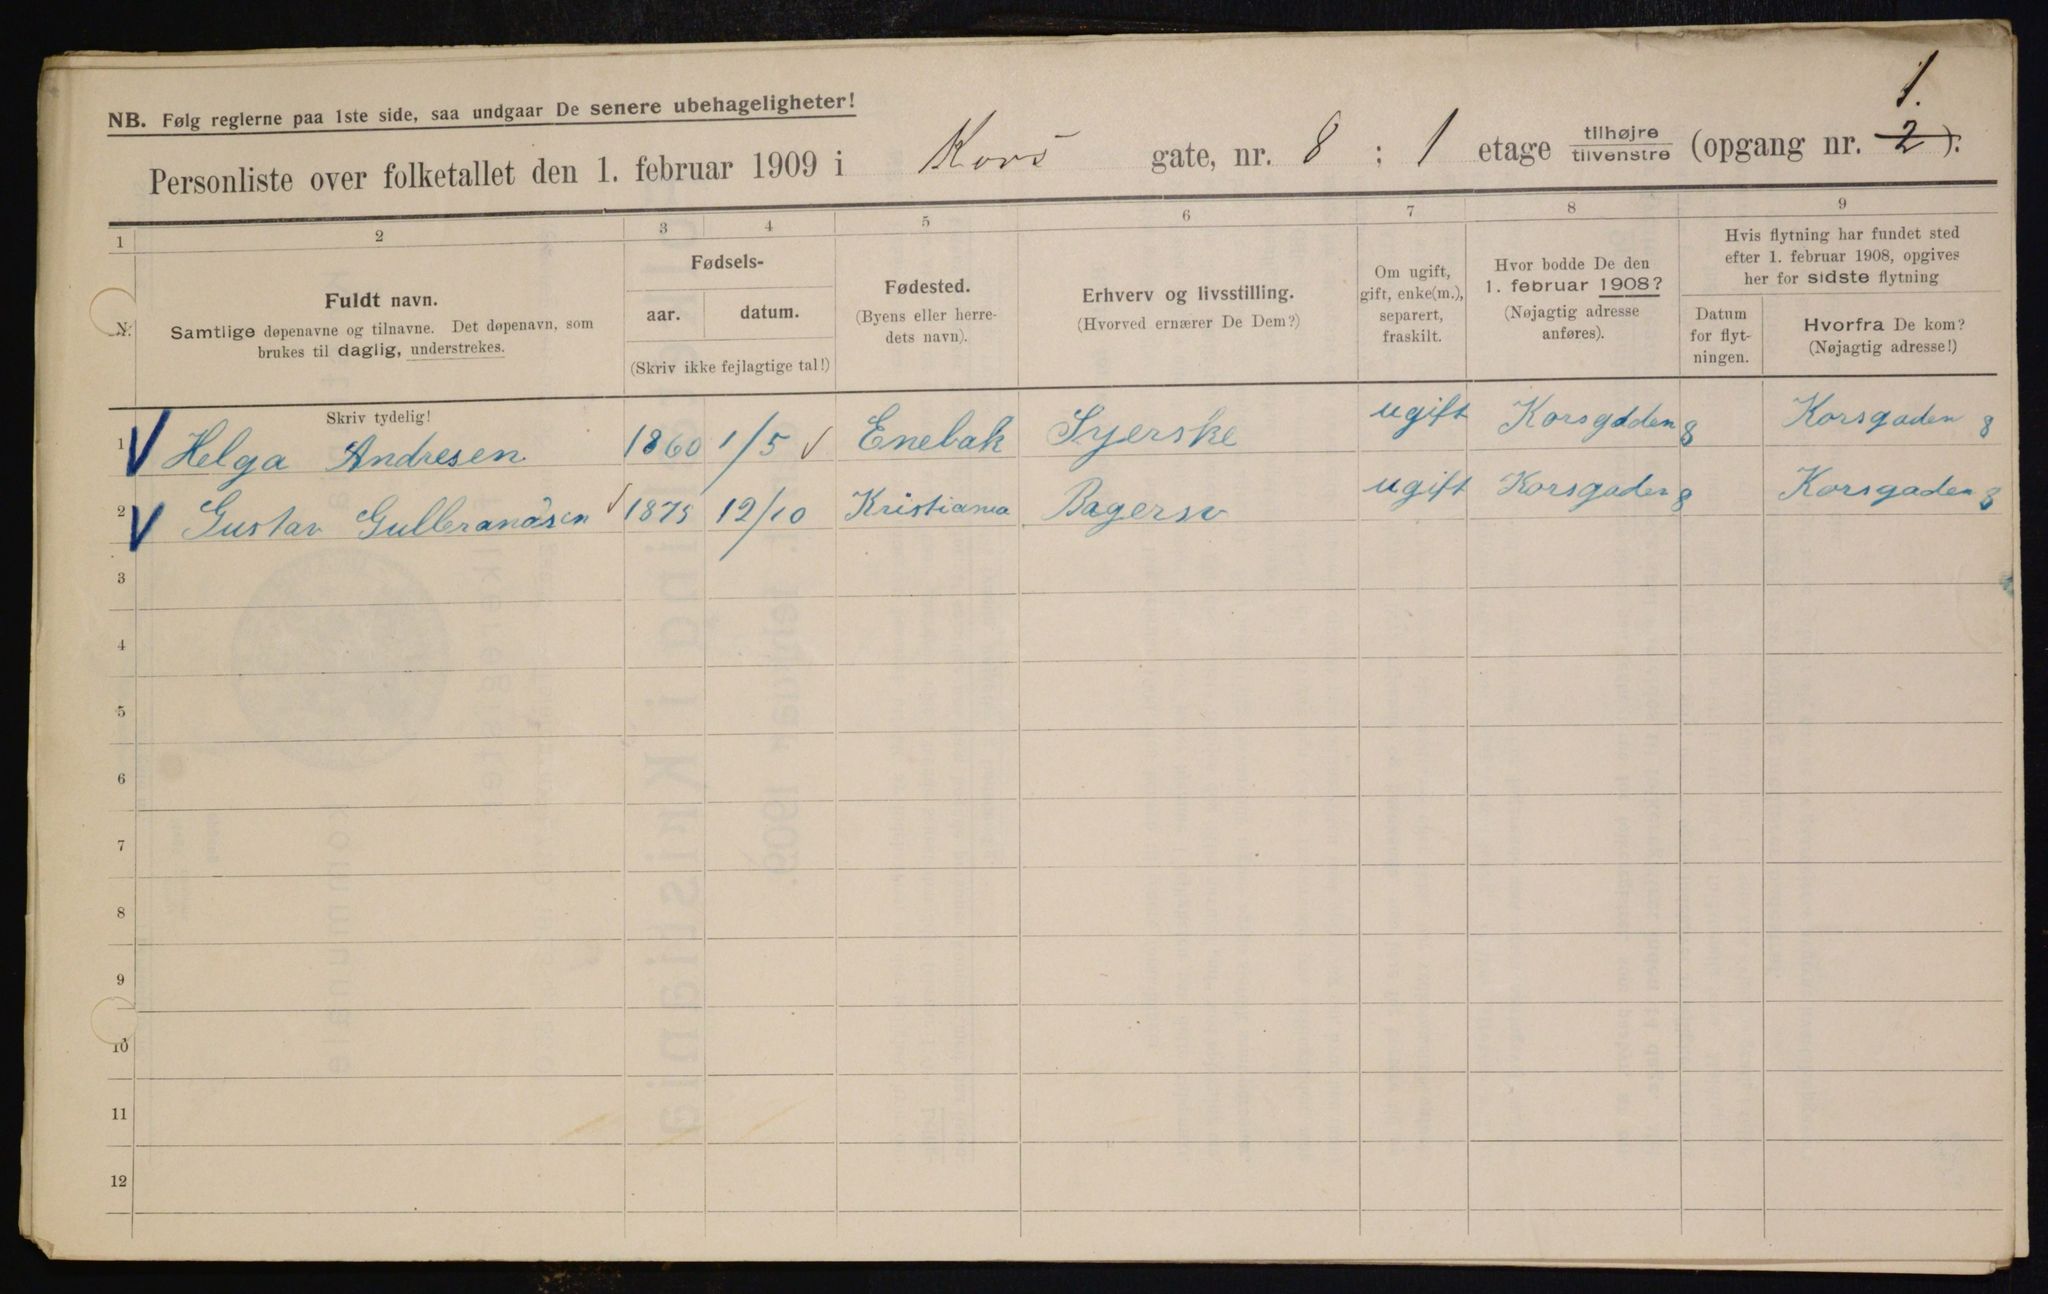 1.
NB. Følg reglerne paa 1ste side, saa undgaar De senere ubehageligheter!
Personliste over folketallet den 1. februar 1909 i Kors gate, nr. 8 ; 1 etage tilhøjre tilvenstre (opgang nr. 2).
1 2 3 4 5 6 7 8 9
N.
Fuldt navn.
Samtlige døpenavne og tilnavne. Det døpenavn, som
brukes til daglig, understrekes.
Skriv tydelig!
Fødsels-
aar. datum.
(Skriv ikke fejlagtige tal!)
Fødested.
(Byens eller herre-
dets navn).
Erhverv og livsstilling.
(Hvorved ernærer De Dem?)
Om ugift,
gift, enke(m.),
separert,
fraskilt.
Hvor bodde De den
1. februar 1908?
(Nøjagtig adresse
anføres).
Hvis flytning har fundet sted
efter 1. februar 1908, opgives
her for sidste flytning
Datum
for flyt-
ningen.
Hvorfra De kom?
(Nøjagtig adresse!)
1 Helga Andresen 1860 1/5 Enebak Syerske ugift Korsgaden 8 Korsgaden 8
2 Gustav Gulbrandsen 1875 12/10 Kristiania Bagersv ugift Korsgaden 8 Korsgaden 8
3
4
5
6
7
8
9
10
11
12